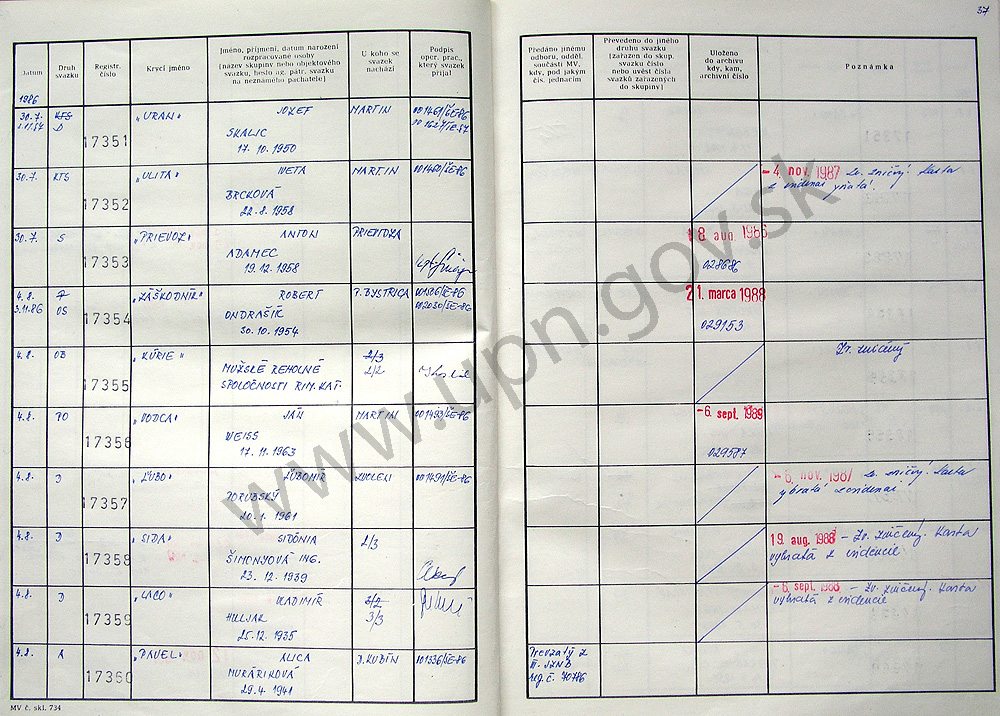 37
Datum
Druh svazku
Registr. číslo
Krycí jméno
Jméno, příjmení, datum narození
rozpracované osoby
(název skupiny nebo objektového
svazku, heslo ag. pátr. svazku
na neznámého pachatele)
U koho se
svazek
nachází
Podpis
oper. prac.,
který svazek
přijal
Předáno jinému
odboru, odděl.
součásti MV,
kdy, pod jakým
čís. jednacím
Převedeno do jiného
druhu svazku
(zařazen do skup.
svazku číslo
nebo uvést čísla
svazků zařazených
do skupiny)
Uloženo
do archivu
kdy, kam,
archivní číslo
Poznámka
1986
30.7. KTS "URAN" JOZEF MARTIN 001461/ŠE-86
D 17351 SKALIC 001627/ŠE-87
17. 10. 1950
30.7. KTS "ULITA" IVETA MARTIN 001460/ŠE-86
17352 BRCKOVÁ
22. 8. 1958
- 4. nov. 1987 Zv. zničený. Karta
z evidencie vyňatá.
30.7. S "PRIEVOZ" ANTON PRIEVIDZA
17353 ADAMEC
19. 12. 1958
18. aug. 1986
028686
4.8. "ZÁŠKODNÍK" ROBERT P. BYSTRICA 001506/ŠE-86
3.11.86 OS 17354 ONDRAŠÍK 002030/ŠE-86
30. 10. 1954
21. marca 1988
029153
4.8. OB "KÚRIE" 2/3
17355 MUŽSKÉ REHOLNÉ 2/2
SPOLOČNOSTI RIM. KAT.
Zv. zničený
4.8. PO "VODCA" JÁN MARTIN 001493/ŠE-86
17356 WEISS
17. 11. 1963
-6. sept. 1989
029587
4.8. D "ĽUBO" ĽUBOMÍR ZVOLEN 001491/ŠE-86
17357 PORUBSKÝ
20. 1. 1961
- 6. nov. 1987 Zv. zničený. Karta
vybratá z evidencie
4.8. D "SIDA" SIDÓNIA 2/3
17358 ŠIMONYOVÁ ING.
23. 12. 1939
19. aug. 1988 - Zv. zničený. Karta
vybratá z evidencie
4.8. D "LACO" VLADIMÍR 2/2
17359 HULJAK 3/3
25. 12. 1935
-6. sept. 1988 - Zv. zničený. Karta
vybratá z evidencie
4.8. A "PAVEL" ALICA D. KUBÍN 001336/ŠE-86
17360 MURÁRIKOVÁ
29. 4. 1941
Prevzatý z
reg. č. 70786
MV č. skl. 734
www.upn.gov.sk